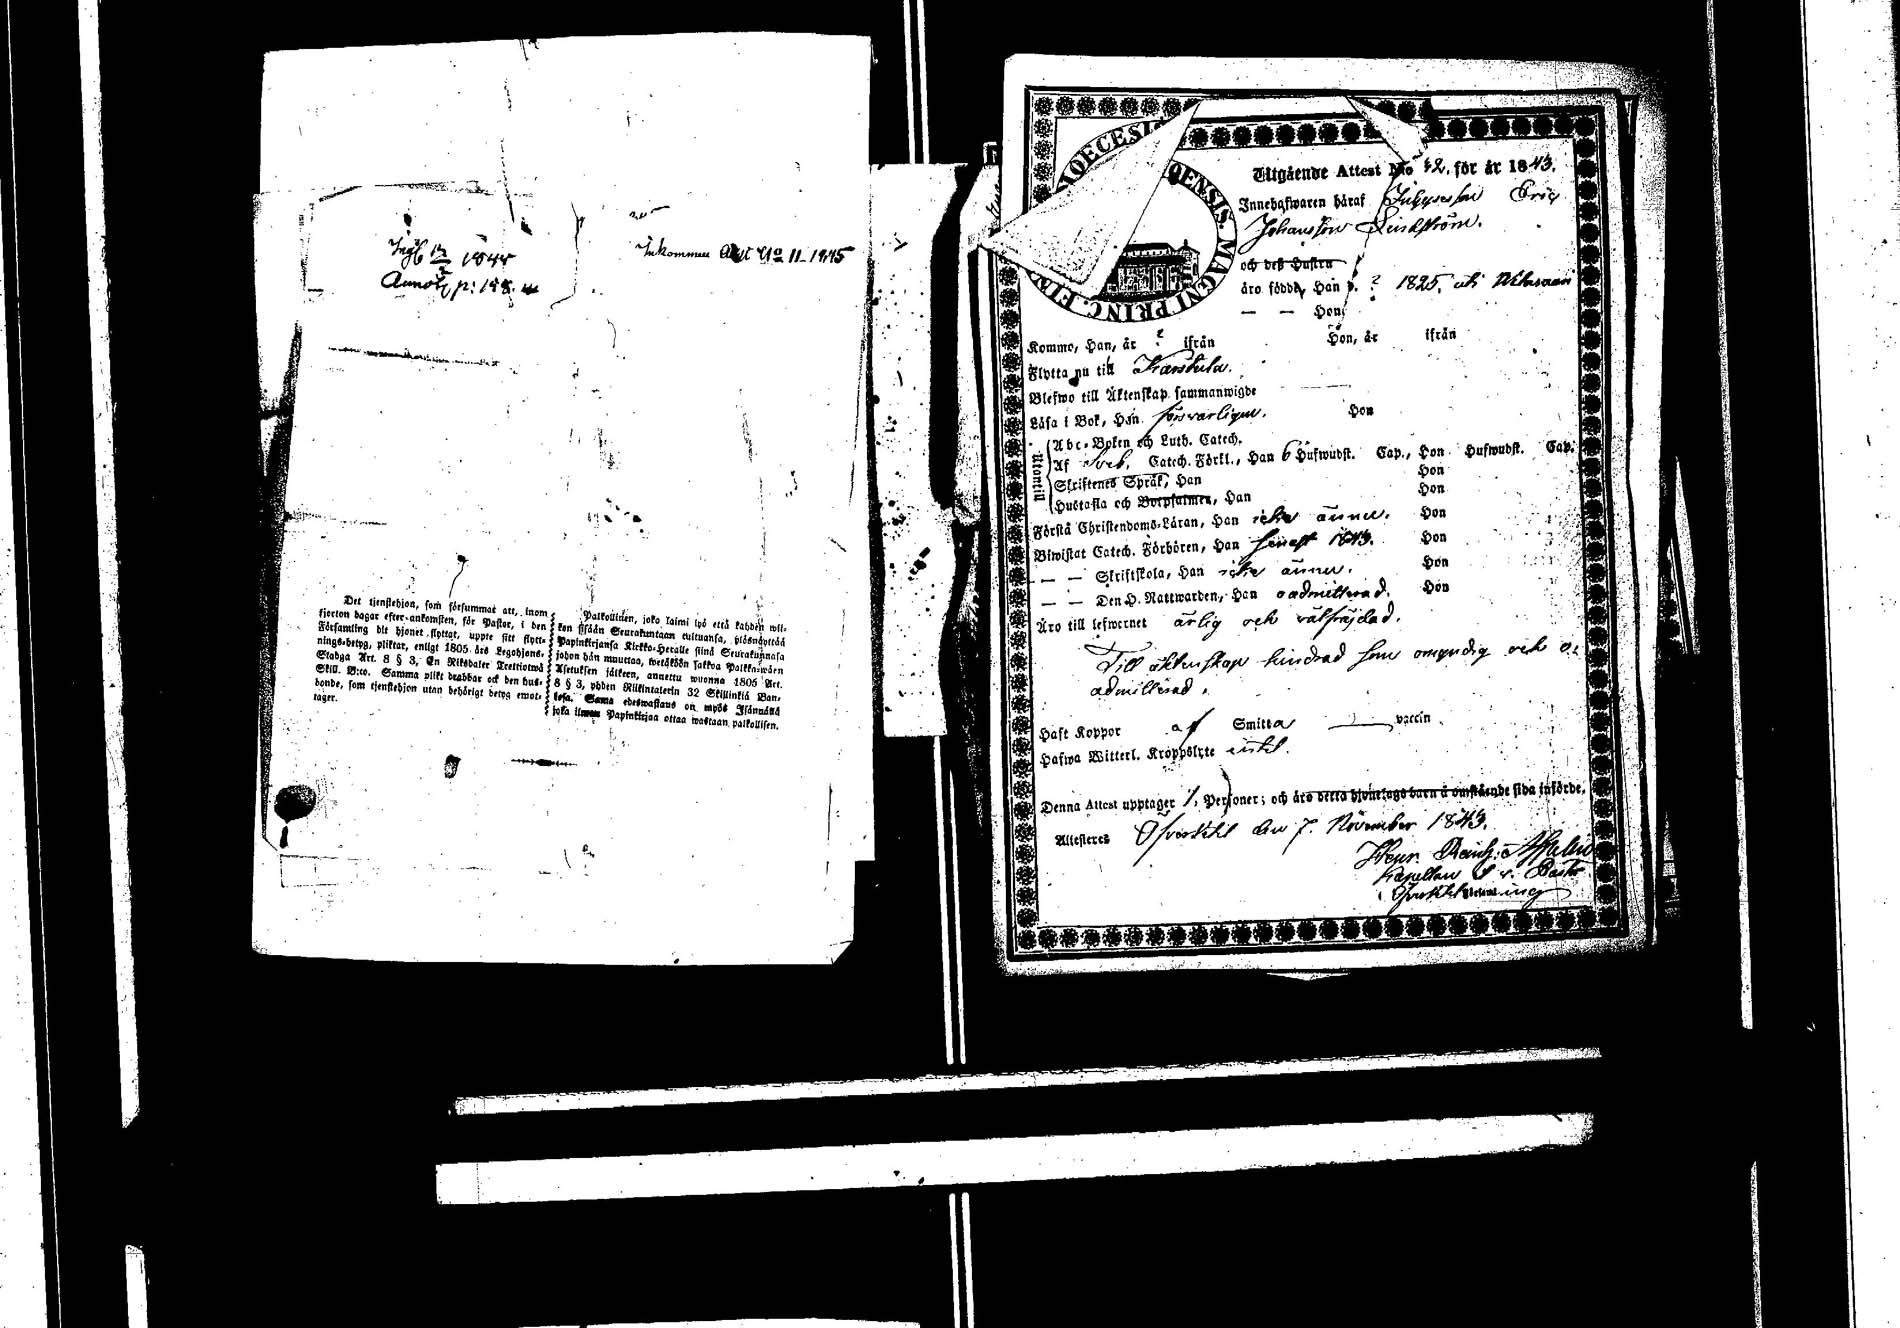 Inkommen Att No 11 1845
Annot. p: 188
Det tjenstehjon, som försummat att, inom
fjorton dagar efter ankomsten, för Pastor, i den
Församling dit hjonet flyttat, uppte sitt flytt-
nings-betyg, pliktar, enligt 1805 års Legohjons-
Stadga Art. 8 § 3, En Riksdaler Trettiotwå
Skill. B:co. Samma plikt drabbar ock den hus-
bonde, som tjenstehjon utan behörigt betyg emot-
tager.
Palkollinen, joka laimi lyö että kahden wii-
kon sisään Seurakuntaan tultuansa, ylösnäyttää
Papinkirjansa Kirkko-Herralle siinä Seurakunnasa
johon hän muuttaa, wetäköön sakkoa Palkka-wäen
Asetuksen jälkeen, annettu wuonna 1805 Art.
8 § 3, yhden Riikintalerin 32 Skillinkiä Ban-
kosa. Sama edeswastaus on myös Isännällä
joka ilman Papinkirjaa ottaa wastaan palkollisen.
DIOECESIS
OENSIS. MAGNI PRINC. FIN
Utgående Attest No 42. för år 1843.
Innehafwaren häraf Eric
Johansson Lindström.
och deß Hustru
äro födde, Han ? 1825, uti
— — Hon
Kommo, Han, år ? ifrån Hon, år ifrån
Flytta nu till Karstula.
Blefwo till Äktenskap sammanwigde
Läsa i Bok, Han försvarligen. Hon
Utontill
Abc-Boken och Luth. Catech.
Af Sveb. Catech. Förkl., Han 6 Hufwudst. Cap., Hon Hufwudst. Cap.
Skriftenes Språk, Han Hon
Hustafla och Botpsalmer, Han Hon
Förstå Christendoms-Läran, Han icke ännu. Hon
Biwistat Catech. Förhören, Han senast 1843. Hon
— — Skriftskola, Han icke ännu. Hon
— — Den H. Nattwarden, Han oadmitterad. Hon
Äro till lefwernet ärlig och välfräjdad.
Till äktenskap hindrad som omyndig och o-
admitterad.
Haft Koppor af Smitta — vaccin
Hafwa Witterl. Kroppslyte intet.
Denna Attest upptager 1. Personer; och äro detta hjonelags barn å omstående sida införde.
Attesteres Öfvertitel den 7. November 1843.
Kapellan